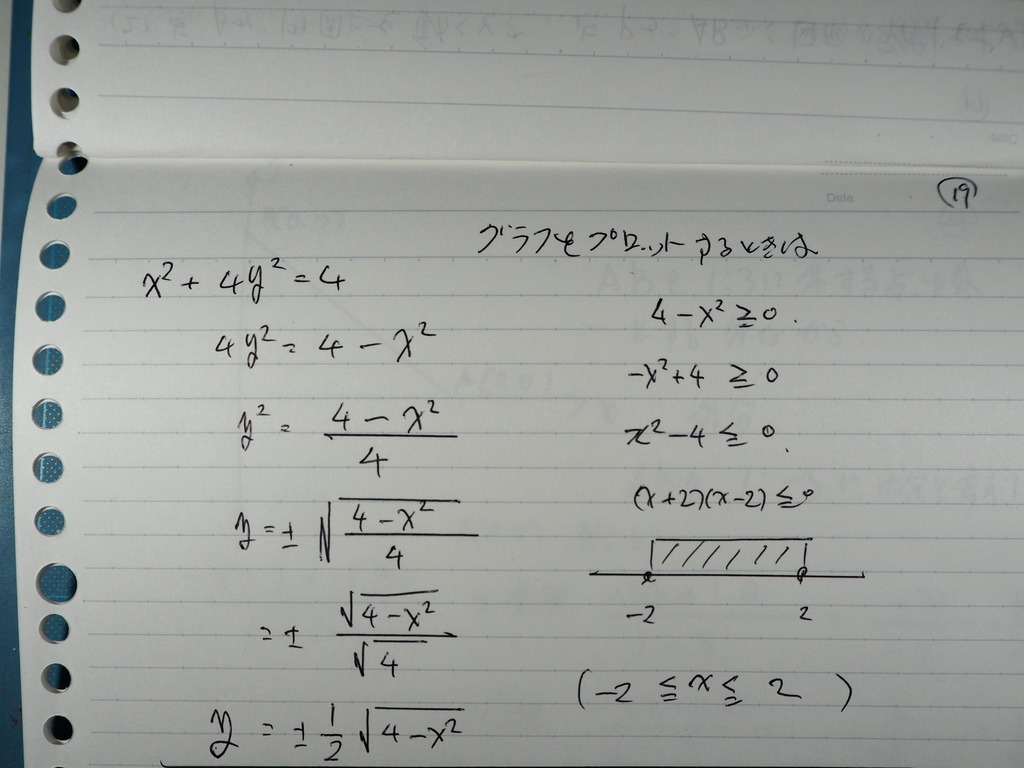 Date
19
x² + 4y² = 4
4y² = 4 - x²
y² = (4 - x²)/4
y = ± √((4 - x²)/4)
= ± √(4 - x²)/√4
y = ± 1/2 √(4 - x²)
グラフをプロットするときは
4 - x² ≧ 0.
-x² + 4 ≧ 0
x² - 4 ≦ 0.
(x+2)(x-2) ≦ 0
-2 2
(-2 ≦ x ≦ 2)